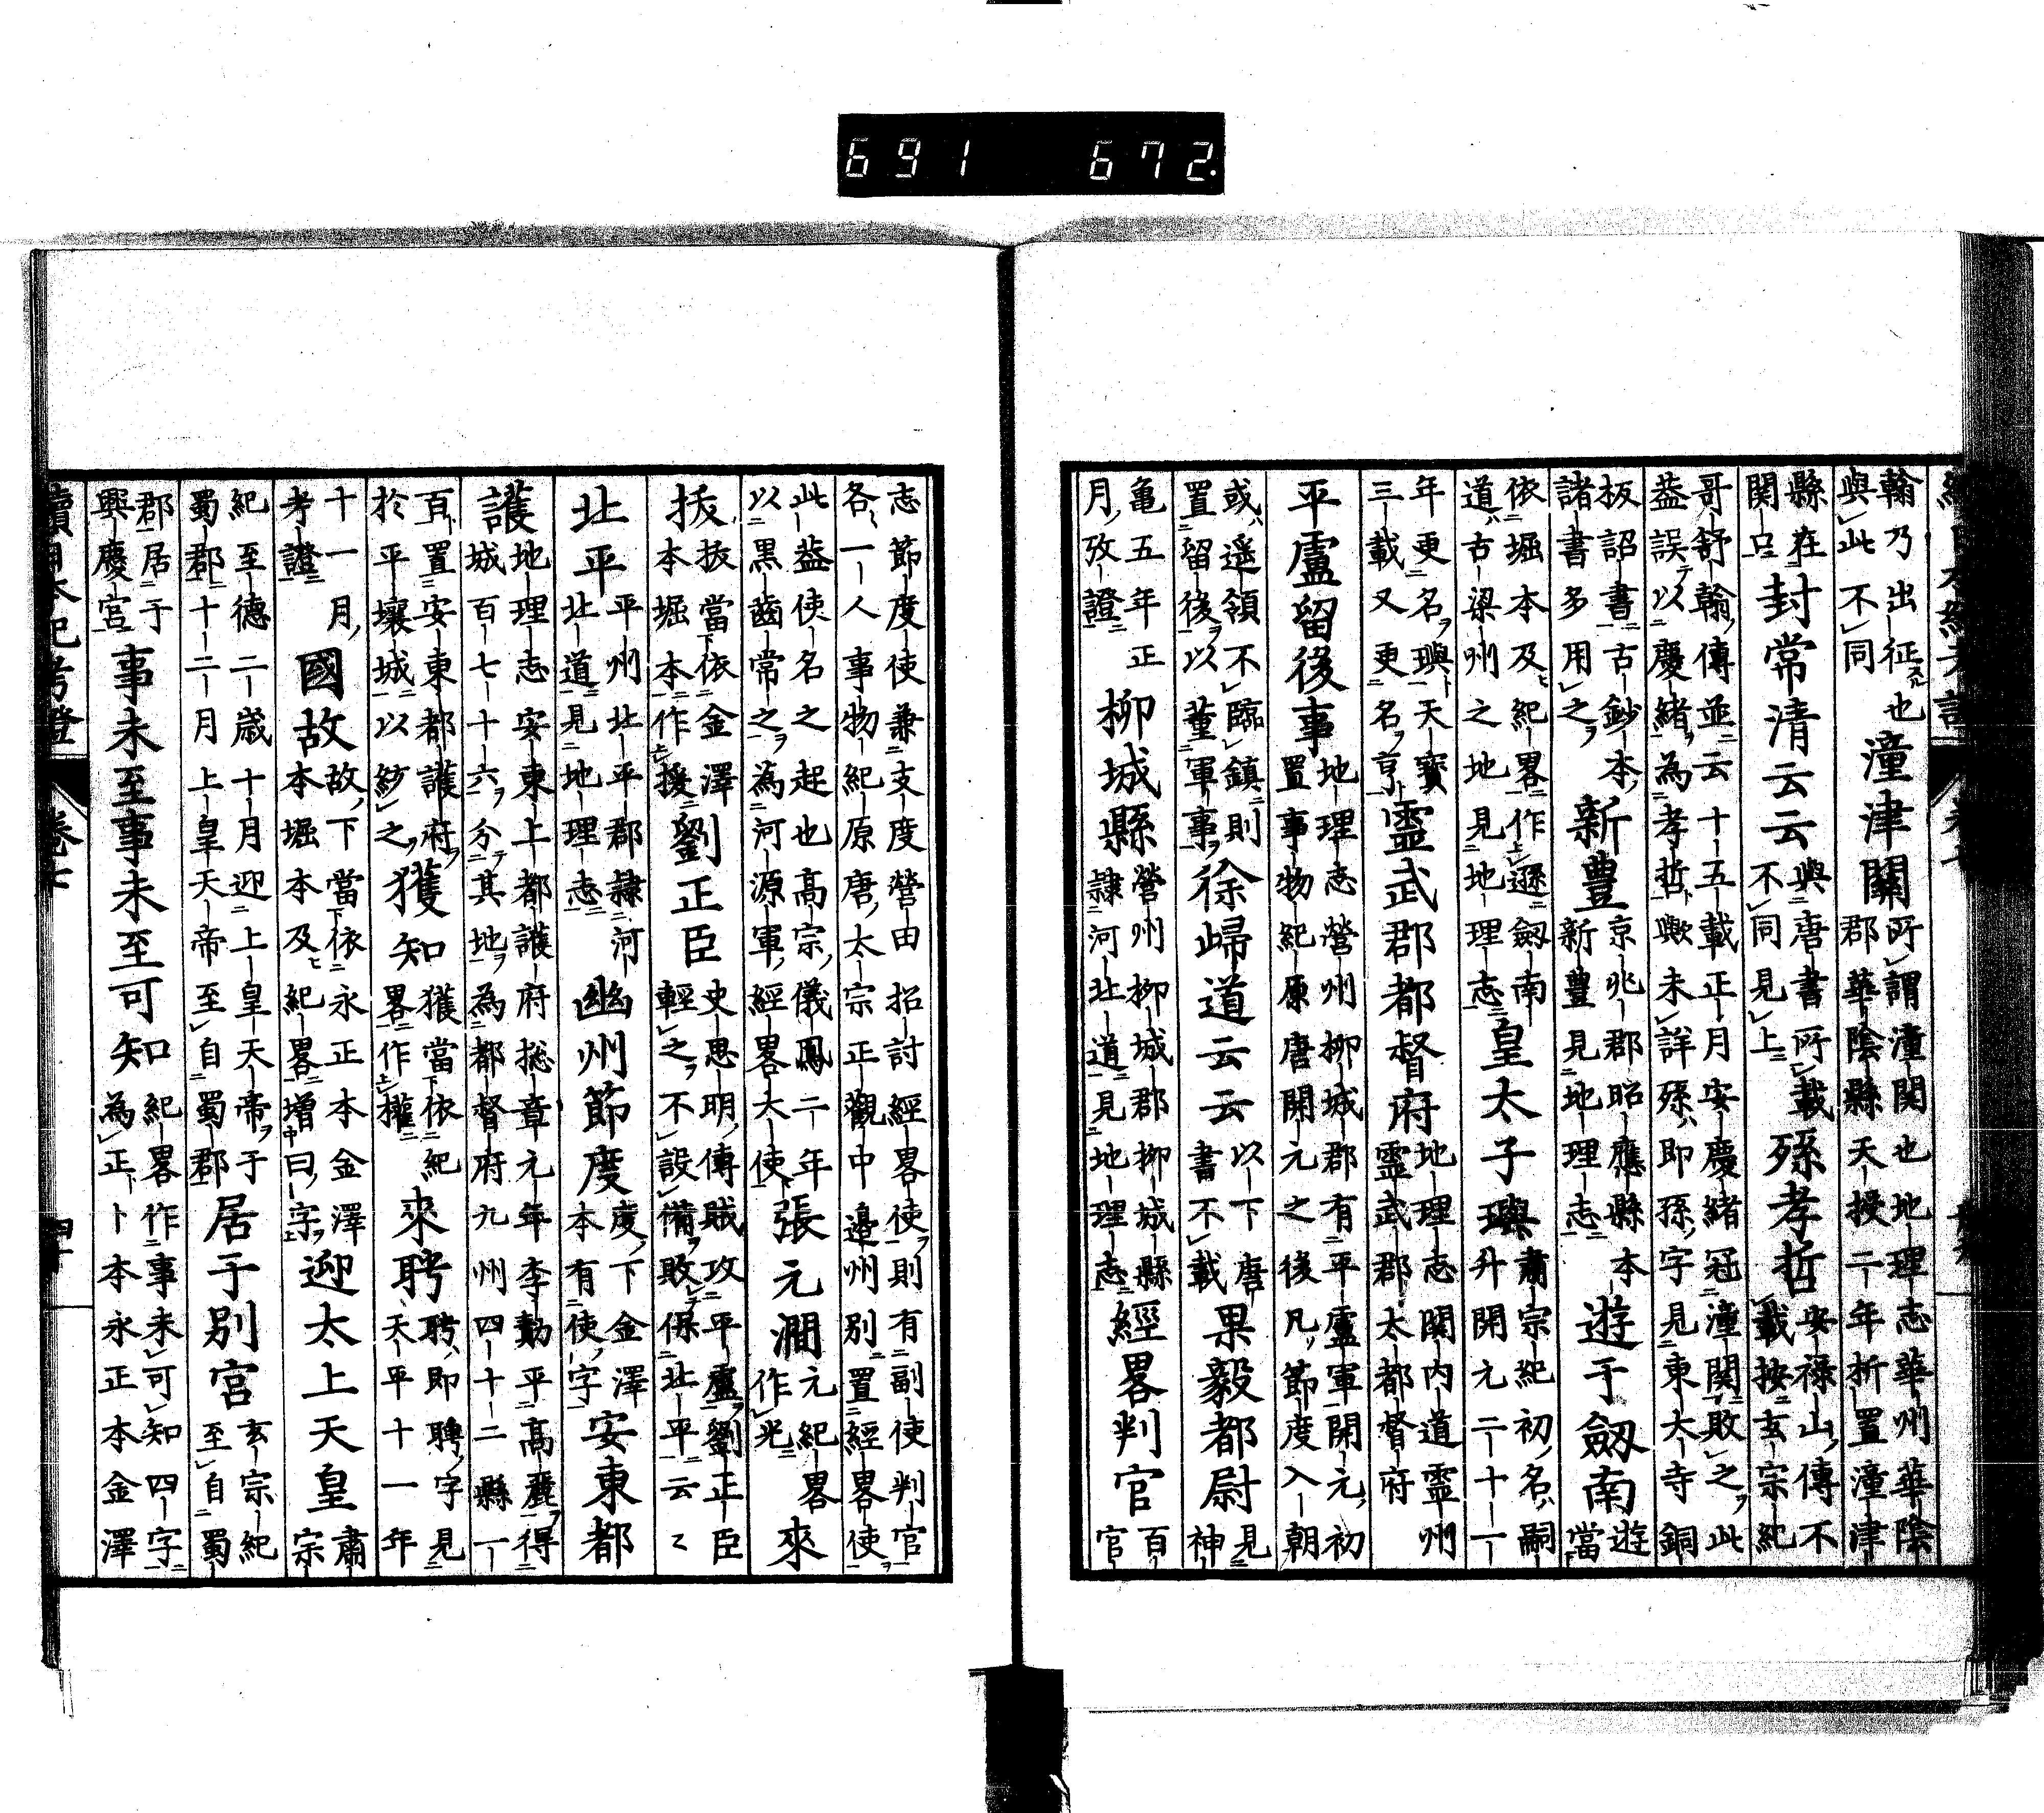 翰乃出征也
與此不同
潼津關
所謂潼関也地理志華州華陰
郡華陰縣天授二年析置潼津
縣在
関口
封常清云云
與唐書所載
不同見上
殊孝哲
安祿山傳不
載按玄宗紀
哥舒翰傳並云十五載正月安慶緒冦潼関敗之此
葢誤以慶緒為孝哲歟未詳殊即孫字見東大寺銅
板詔書古鈔本
諸書多用之
新豊
京兆郡昭應縣本
新豊見地理志
遊于劔南
遊
當
依堀本及紀畧作遜劔南
道古梁州之地見地理志
皇太子璵
肅宗紀初名嗣
升開元二十一
年更名璵天寳
三載又更名亨
靈武郡都督府
地理志関内道靈州
靈武郡太都督府
平盧留後事
地理志營州柳城郡有平盧軍開元初
置事物紀原唐開元之後凡節度入朝
或遥領不臨鎮則
置留後以董軍事
徐歸道云云
以下唐
書不載
果毅都尉
見
神
亀五年正
月攷證
柳城縣
營州柳城郡柳城縣
隷河北道見地理志
經畧判官
百
官
志節度使兼支度營田招討經畧使則有副使判官
各一人事物紀原唐太宗正觀中邉州別置經畧使
此葢使名之起也高宗儀鳳二年
以黒齒常之為河源軍經畧大使
張元澗
元紀畧
作光
來
拔
拔當依金澤
本堀本作援
劉正臣
史思明傳賊攻平盧劉正臣
輕之不設備敗保北平云〻
北平
平州北平郡隷河
北道見地理志
幽州節度
度下金澤
本有使字
安東都
護
地理志安東上都護府捴章元年李勣平高麗得
城百七十六分其地為都督府九州四十二縣一
百置安東都護府
於平壤城以紗之
獲知
獲當依紀
畧作權
來聘
聘即聘字見
天平十一年
十一月
考證
國故
故下當依永正本金澤
本堀本及紀畧増曰字
迎太上天皇
肅
宗
紀至德二歳十月迎上皇天帝于
蜀郡十二月上皇天帝至自蜀郡
居于別宮
玄宗紀
至自蜀
郡居于
興慶宮
事未至事未至可知
紀畧作事未可知四字
為正卜本永正本金澤
續日本紀考證
卷七
四十
691 672.